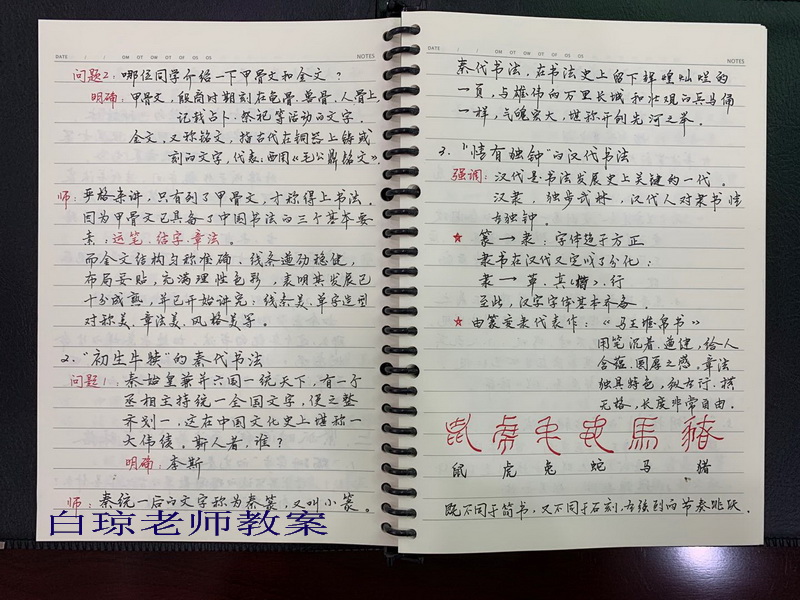 DATE / / OM OT OM OT OF OS OS NOTES
问题2：哪位同学介绍一下甲骨文和金文？
明确：甲骨文，殷商时期刻在龟骨、兽骨、人骨上，
记载占卜、祭祀等活动的文字。
金文，又称铭文，指古代在铜器上铸或
刻的文字，代表：西周《毛公鼎铭文》。
师：严格来讲，只有到了甲骨文，才称得上书法。
因为甲骨文已具备了中国书法的三个基本要
素：运笔、结字、章法。
而金文结构匀称准确，线条遒劲稳健，
布局妥贴，充满理性色彩，表明其发展已
十分成熟，并已开始讲究：线条美、单字造型
对称美、章法美、风格美等。
2."初生牛犊"的秦代书法
问题1：秦始皇兼并六国一统天下，有一个
丞相主持统一全国文字，使之整
齐划一，这在中国文化史上堪称一
大伟绩，斯人者，谁？
明确：李斯
师：秦统一后的文字称为秦篆，又叫小篆。
白琼老师教案
DATE / / OM OT OM OT OF OS OS NOTES
秦代书法，在书法史上留下辉煌灿烂的
一页，与雄伟的万里长城和壮观的兵马俑
一样，气魄宏大，堪称开创先河之举。
3."情有独钟"的汉代书法
强调：汉代是书法发展史上关键的一代。
汉隶，独步武林，汉代人对隶书情
有独钟。
★ 篆→隶：字体趋于方正
隶书在汉代又完成了分化：
隶→草、真（楷）、行
至此，汉字字体基本齐备
★ 由篆变隶代表作：《马王堆帛书》
用笔沉着、遒健，给人
含蓄、圆厚之感，章法
独具特色，纵有行、横
无格，长度非常自由。
鼠 虎 兔 蛇 馬 豬
鼠 虎 兔 蛇 马 猪
既不同于简书，又不同于石刻，有强烈的节奏跳跃。